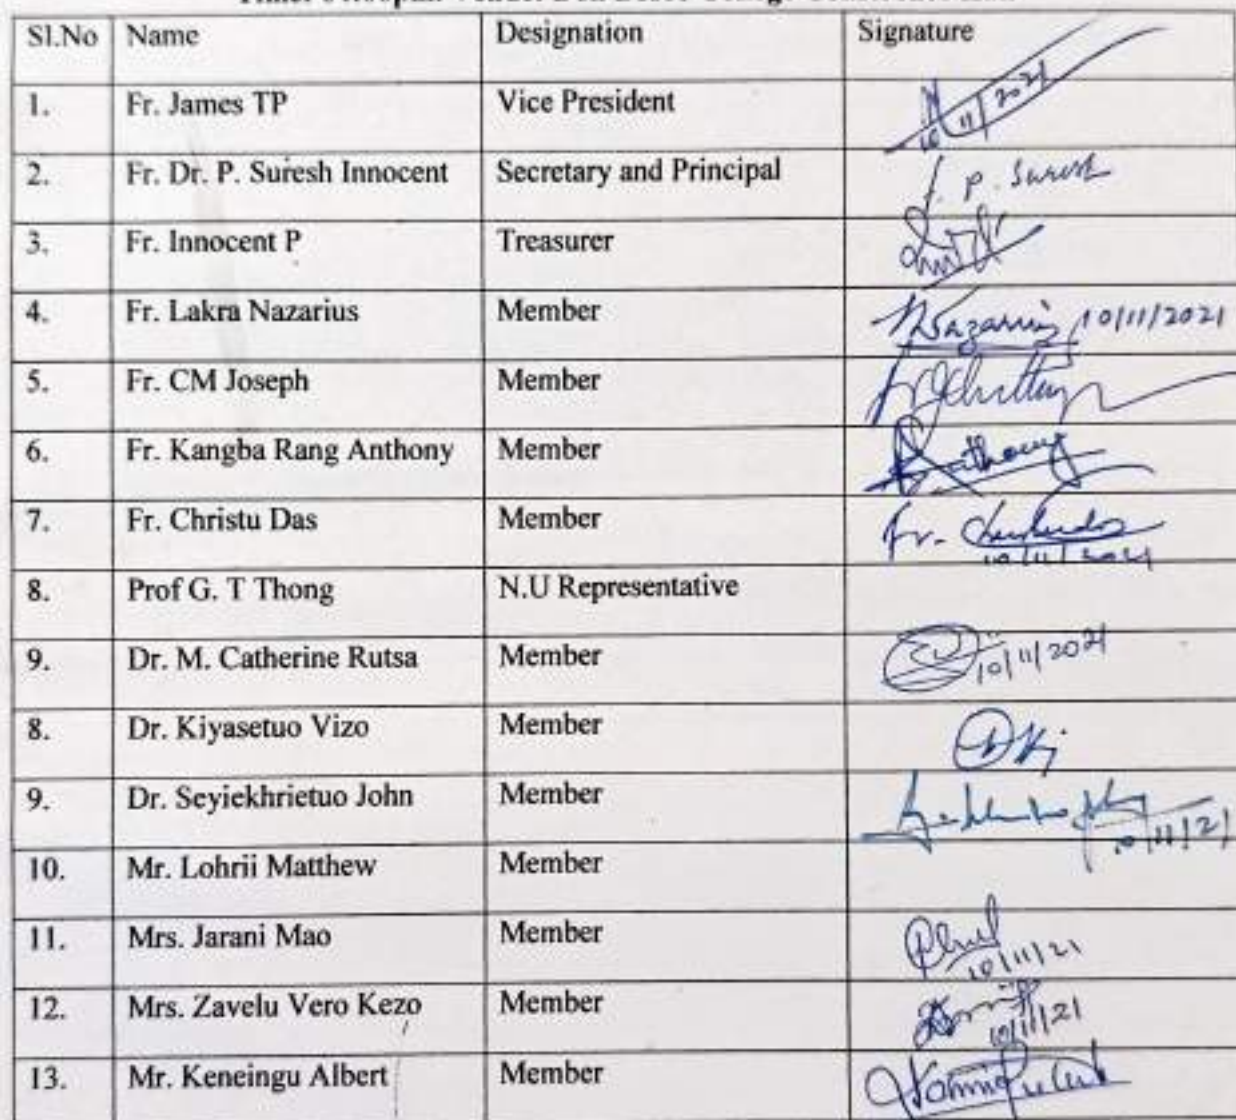 Sl.No Name Designation Signature
1. Fr. James TP Vice President 10/11/2021
2. Fr. Dr. P. Suresh Innocent Secretary and Principal P. Suresh
3. Fr. Innocent P Treasurer
4. Fr. Lakra Nazarius Member Nazarius 10/11/2021
5. Fr. CM Joseph Member
6. Fr. Kangba Rang Anthony Member Anthony
7. Fr. Christu Das Member Fr. Christudas
10/11/2021
8. Prof G. T Thong N.U Representative
9. Dr. M. Catherine Rutsa Member 10/11/2021
8. Dr. Kiyasetuo Vizo Member
9. Dr. Seyiekhrietuo John Member
10/11/21
10. Mr. Lohrii Matthew Member
11. Mrs. Jarani Mao Member
10/11/21
12. Mrs. Zavelu Vero Kezo Member
10/11/21
13. Mr. Keneingu Albert Member